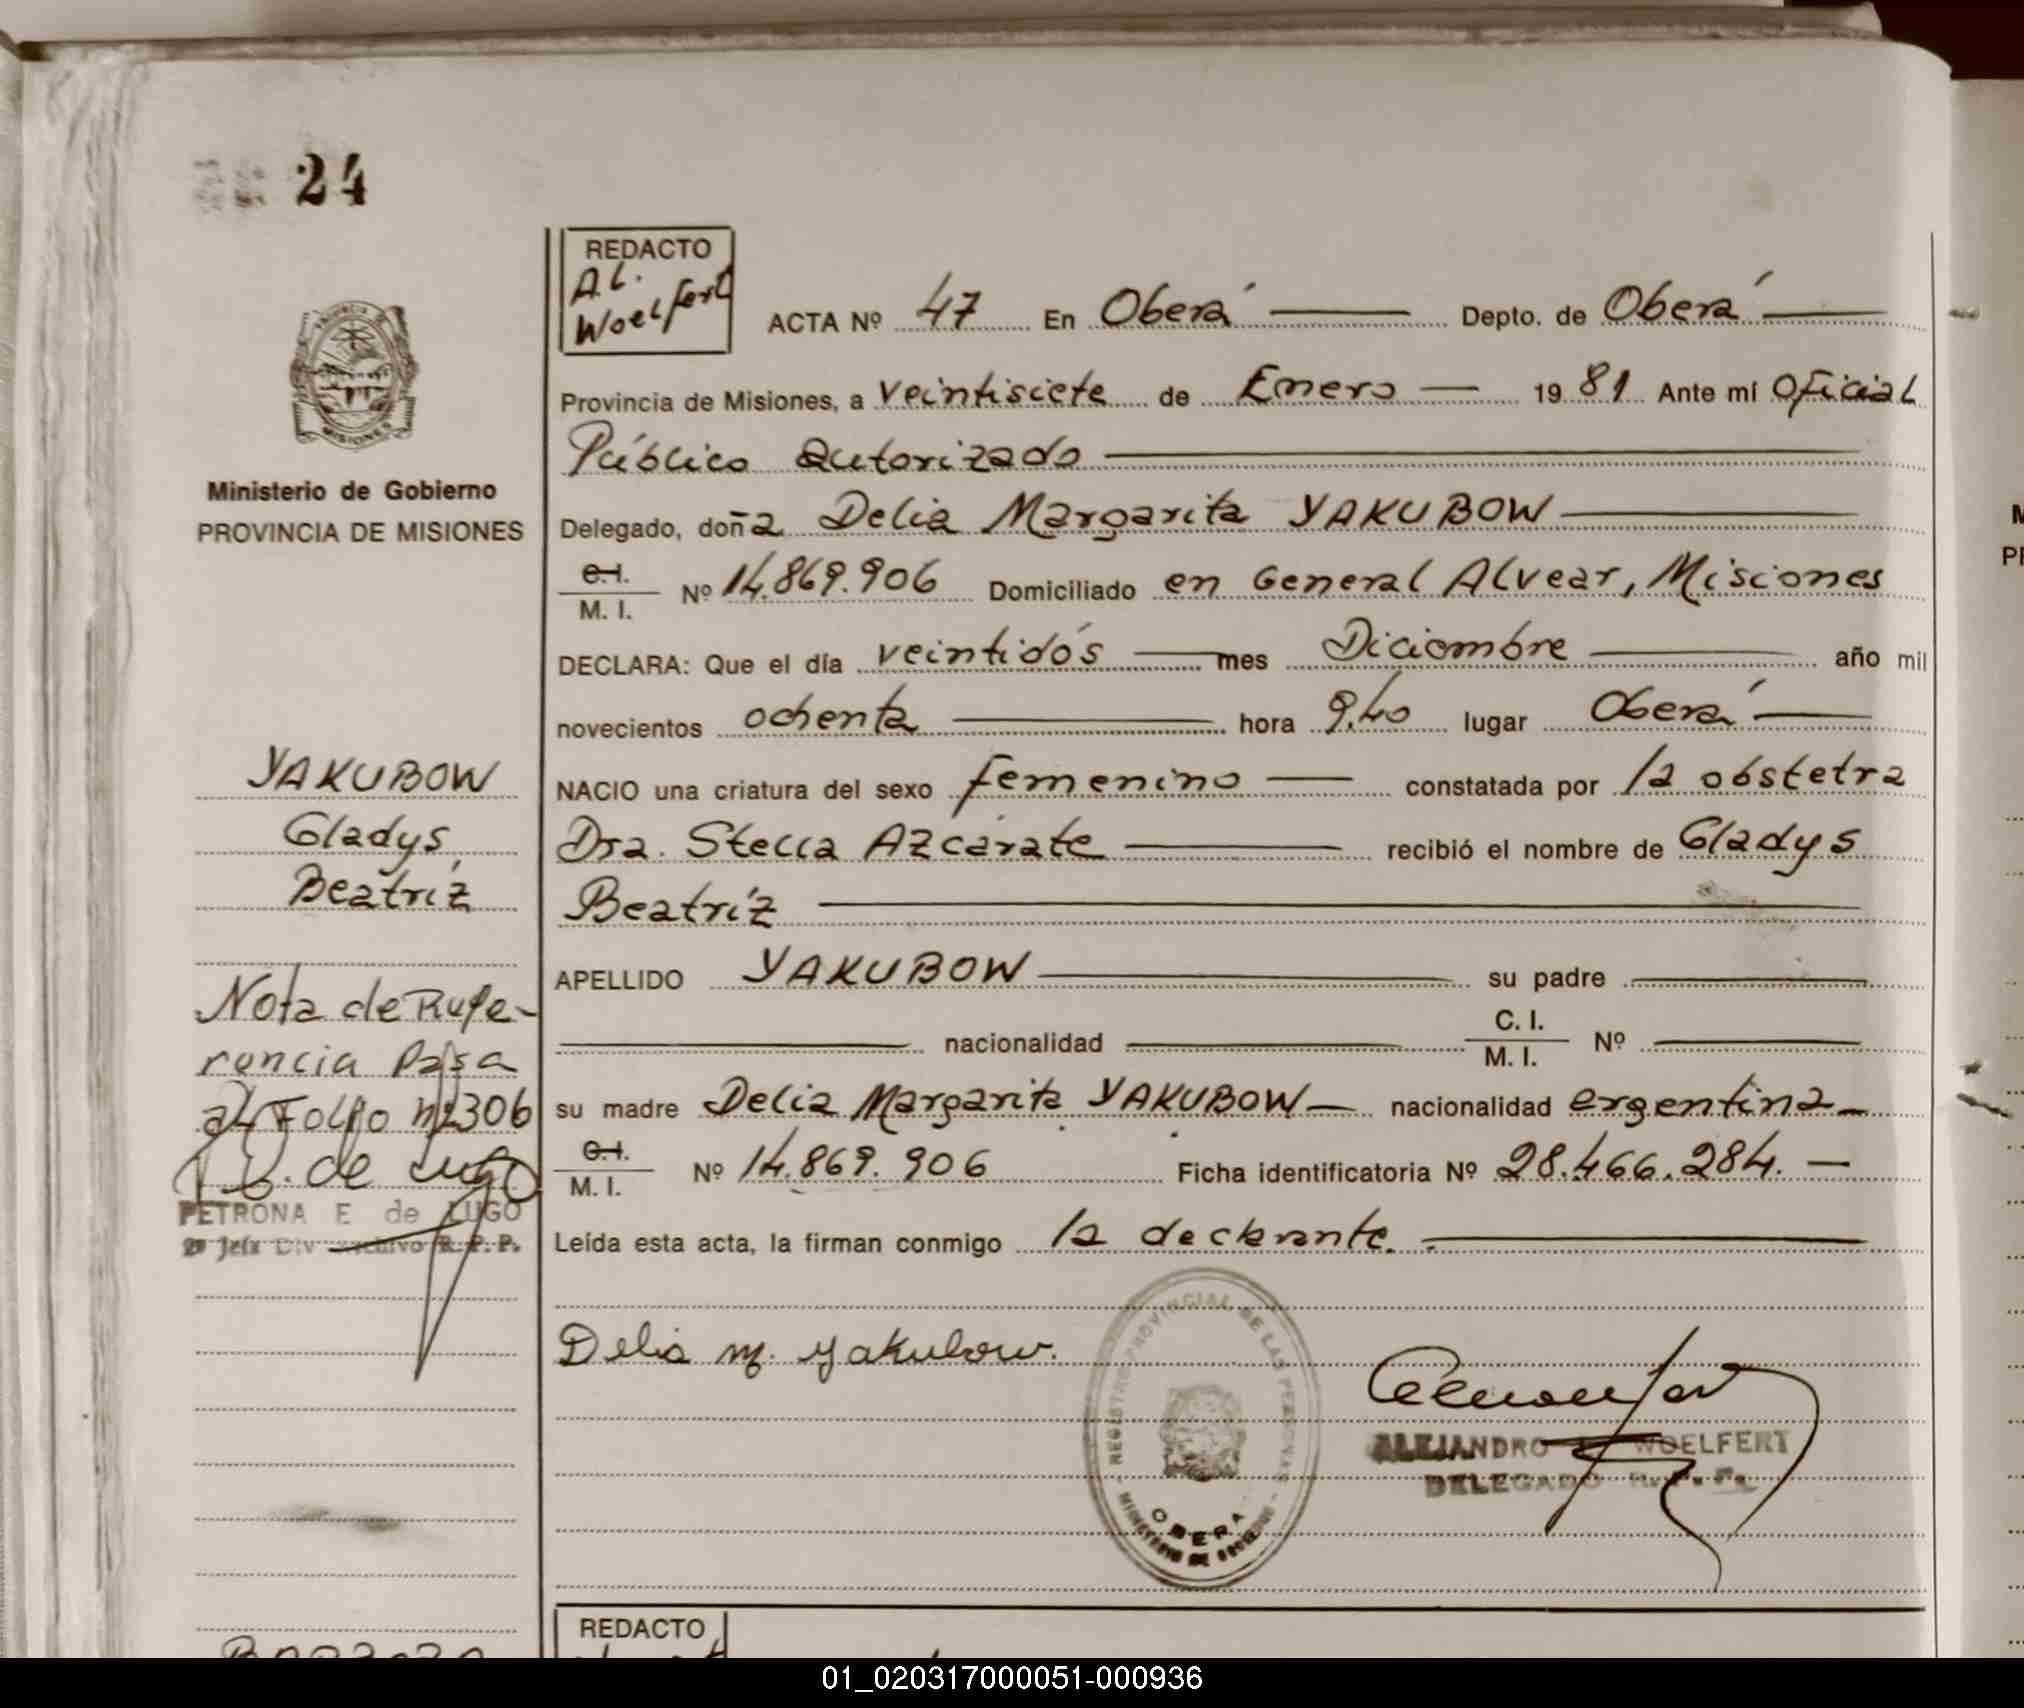 24
REDACTO
A.L.
Woelfert
ACTA Nº 47 En Oberá Depto. de Oberá
Provincia de Misiones, a veintisiete de Enero 19 81 Ante mí Oficial
Público autorizado
Delegado, doña Delia Margarita YAKUBOW
C.I.
M. I. Nº 14.869.906 Domiciliado en General Alvear, Misiones
DECLARA: Que el día veintidós mes Diciembre año mil
novecientos ochenta hora 9,40 lugar Oberá
NACIO una criatura del sexo femenino constatada por la obstetra
Dra. Stella Azcárate recibió el nombre de Gladys
Beatríz
APELLIDO YAKUBOW su padre
nacionalidad C. I.
M. I. Nº
su madre Delia Margarita YAKUBOW nacionalidad argentina
C.I.
M. I. Nº 14.869.906 Ficha identificatoria Nº 28.466.284.
Leída esta acta, la firman conmigo la declarante.
Delia M. Yakubow.
REGISTRO PROVINCIAL DE LAS PERSONAS
OBERA
MINISTERIO DE GOBIERNO
ALEJANDRO WOELFERT
DELEGADO R. P. P.
MISIONES
Ministerio de Gobierno
PROVINCIA DE MISIONES
YAKUBOW
Gladys
Beatríz
Nota de Refe-
rencia Pasa
al Folio Nº 306
P. E. de Lugo
PETRONA E de LUGO
2º Jefa Div Archivo R. P. P.
REDACTO
01_020317000051-000936